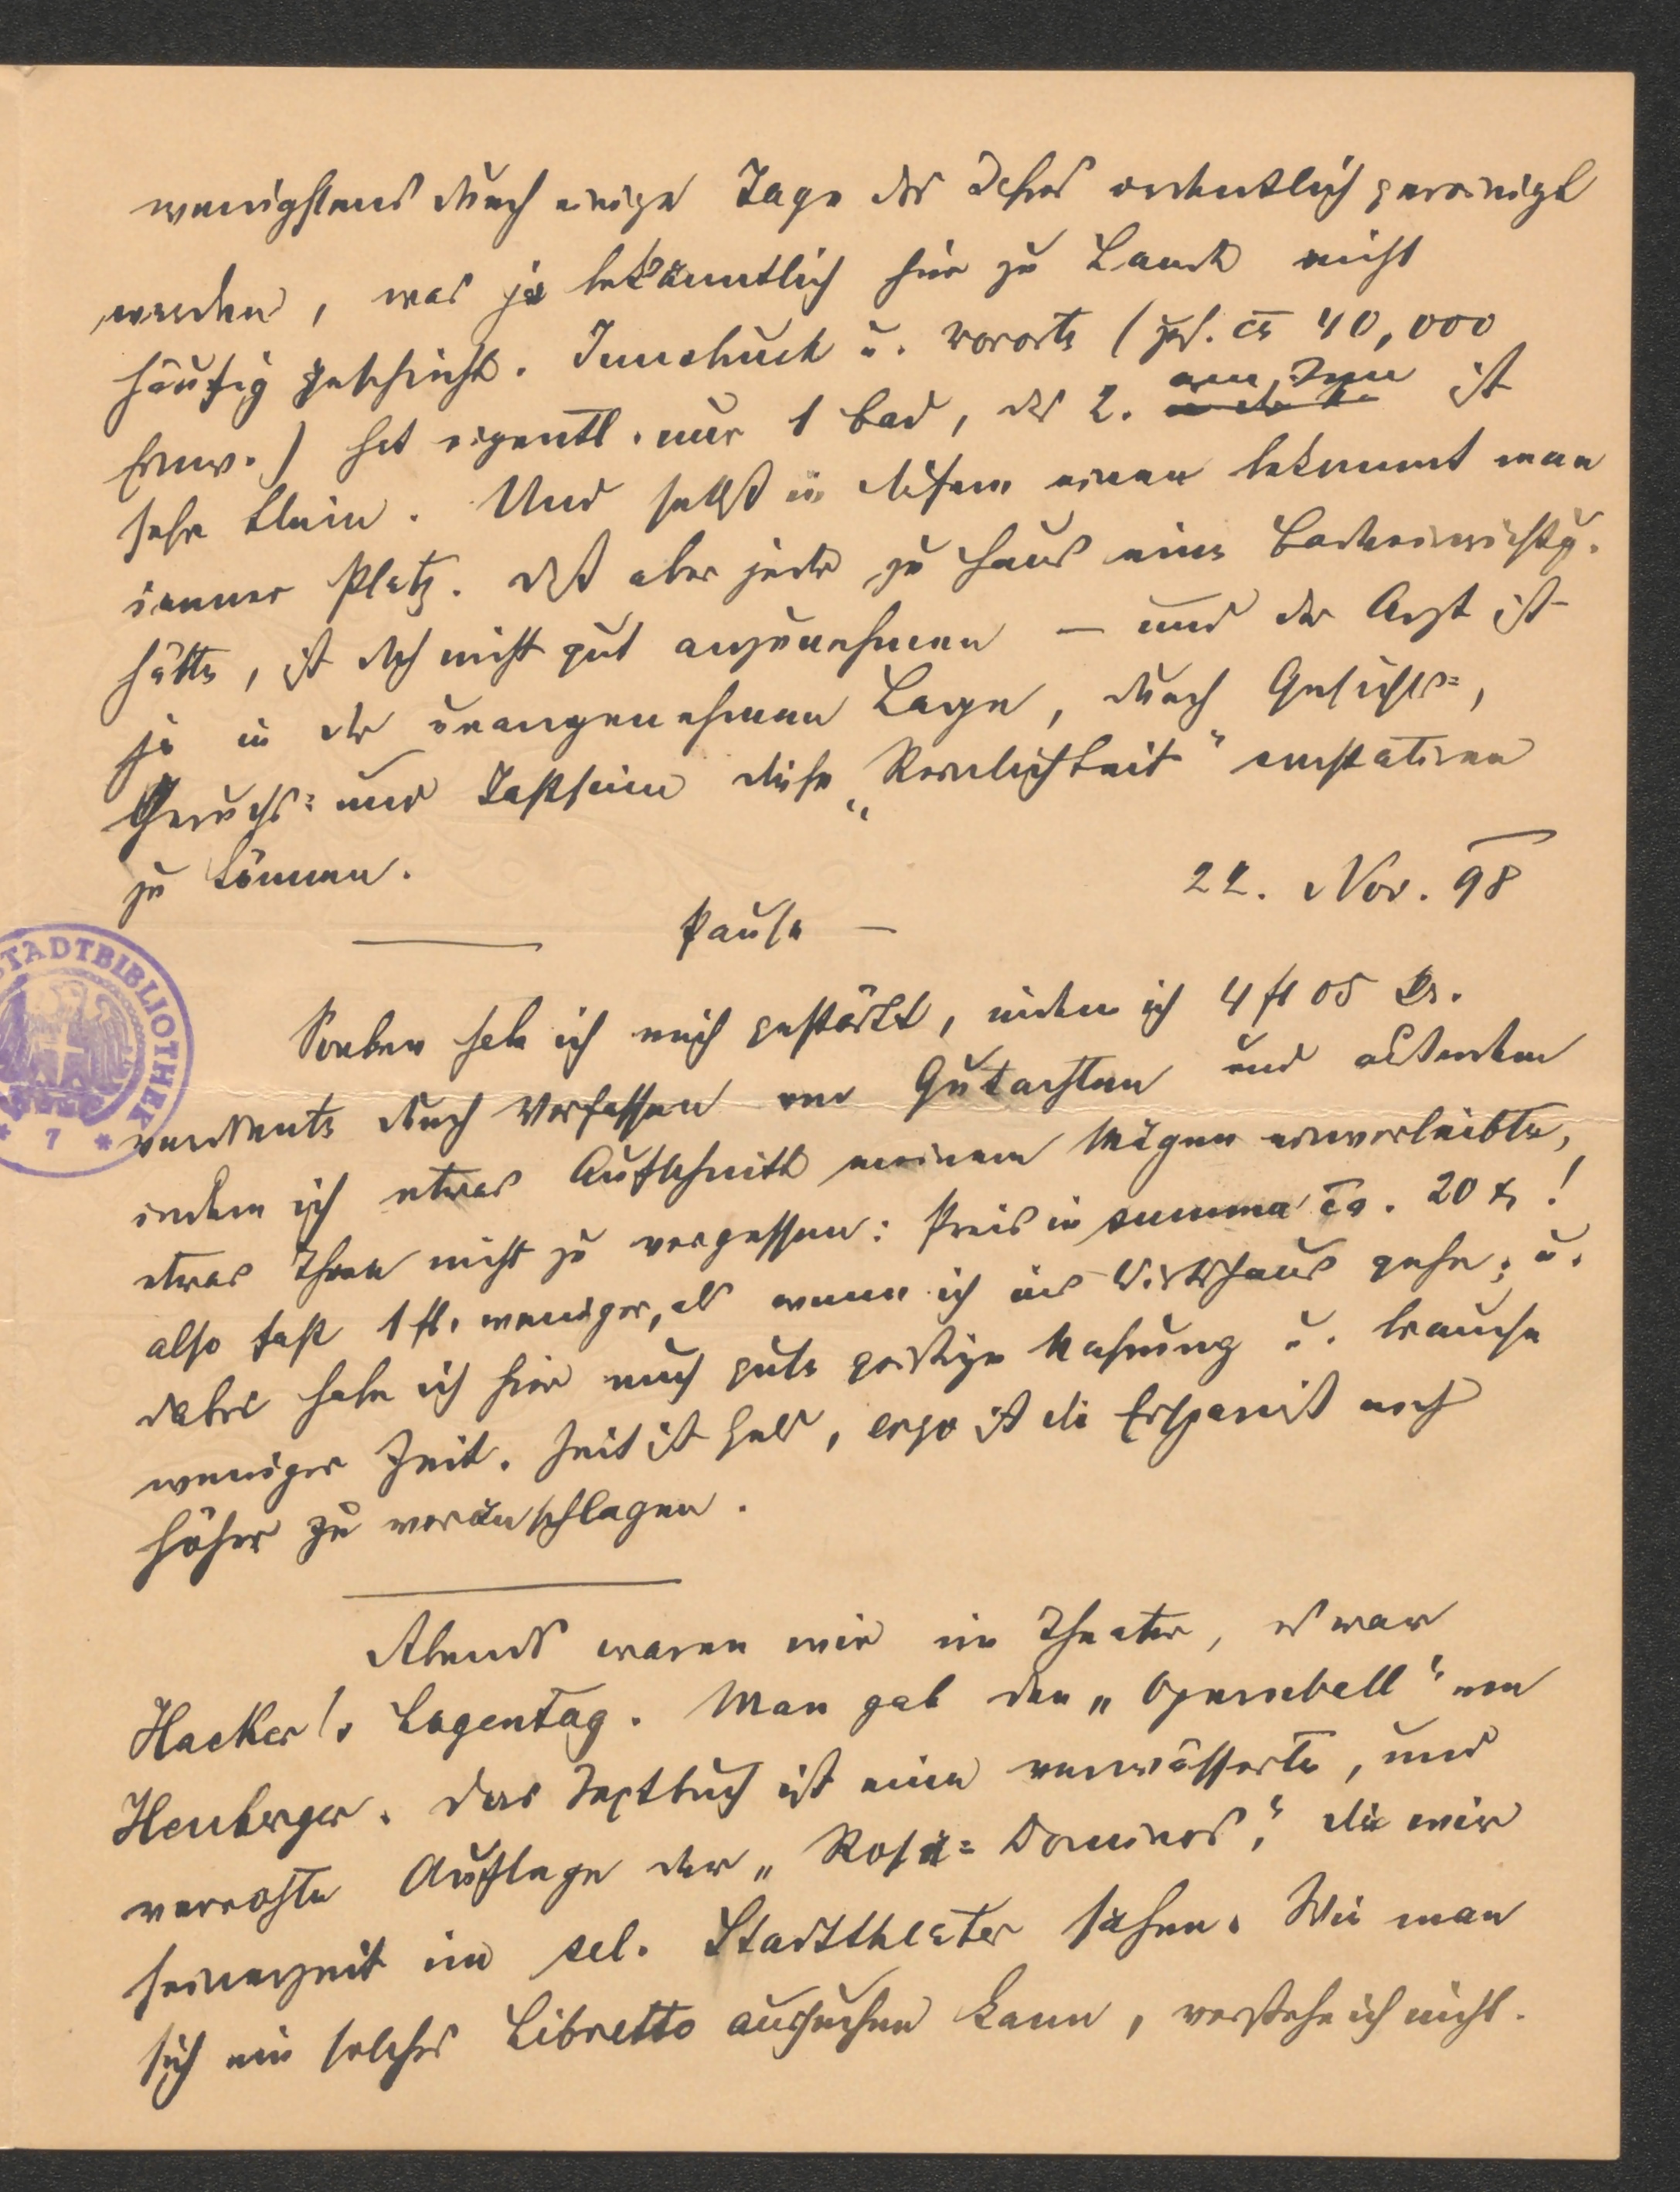 wenigstens durch einige Tage des Jahres ordentlich gereinigt
werden, was ja bekanntlich hier zu Lande nicht
häufig geschieht. Innsbruck u. Vororte (zus. ca 40,000
Einw.) hat eigentl. nur 1 Bad, das 2. am Inn ist
sehr klein. Und selbst in diesem einen bekommt man
immer Platz. Daß aber jeder zu Haus eine Badeeinrichtg.
hätte, ist doch nicht gut anzunehmen — und der Arzt ist
ja in der unangenehmen Lage, durch Gesichts-,
Geruchs- und Tastsinn diese „Reinlichkeit" constatiren
zu können.
22. Nov. 98
Pause —
Soeben hab ich mich gestärkt, indem ich 4 fl 05 kr.
verdiente durch Verfassen von Gutachten und außerdem
indem ich etwas Aufschnitt meinem Magen einverleibte,
etwas Thee nicht zu vergessen: Preis in summa ca. 20 kr!
also fast 1 fl. weniger, als wenn ich ins Wirtshaus gehe; u.
dabei habe ich hier noch gute geistige Nahrung u. brauche
weniger Zeit. Zeit ist Geld, ergo ist die Ersparniß noch
höher zu veranschlagen.
Abends waren wir im Theater, es war
Hacker's Logentag. Man gab den „Opernball" von
Heuberger. Das Textbuch ist eine verwässerte, und
verrohte Auflage der „Rosa-Dominos," die wir
seinerzeit im sel. Stadttheater sahen. Wie man
sich ein solches Libretto aussuchen kann, verstehe ich nicht.
STADTBIBLIOTHEK
* 7 *